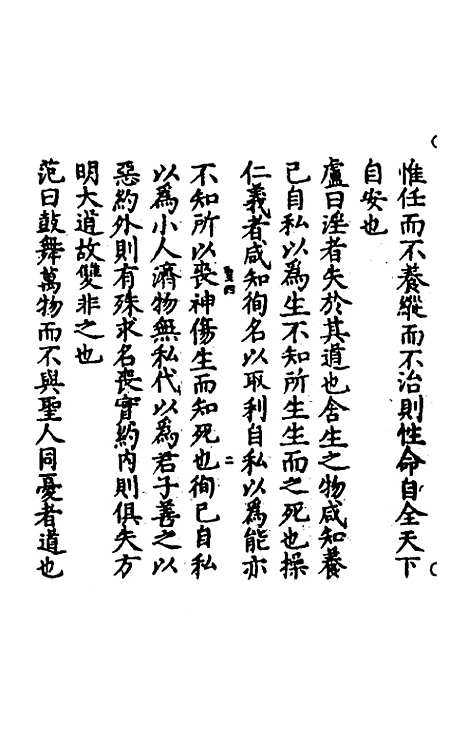 惟任而不養縱而不治則性命自全天下
自安也
盧曰淫者失於其道也含生之物咸知養
已自私以為生不知所生生而之死也操
仁義者咸知徇名以取利自私以為能亦
二
不知所以喪神傷生而知死也徇已自私
以為小人濟物無私代以為君子善之以
惡約外則有殊求名喪實約內則俱失方
明大道故雙非之也
范曰鼓舞萬物而不與聖人同憂者道也